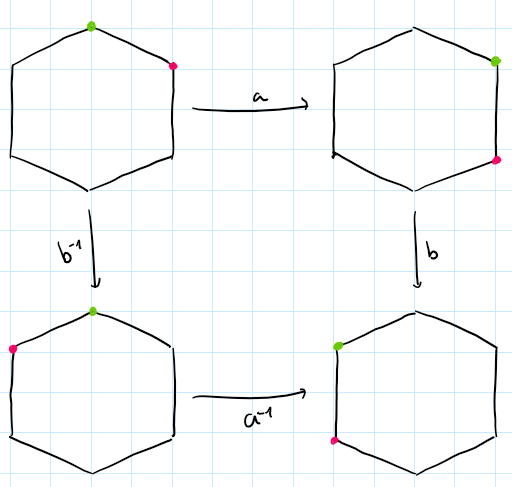 a
b⁻¹
b
a⁻¹